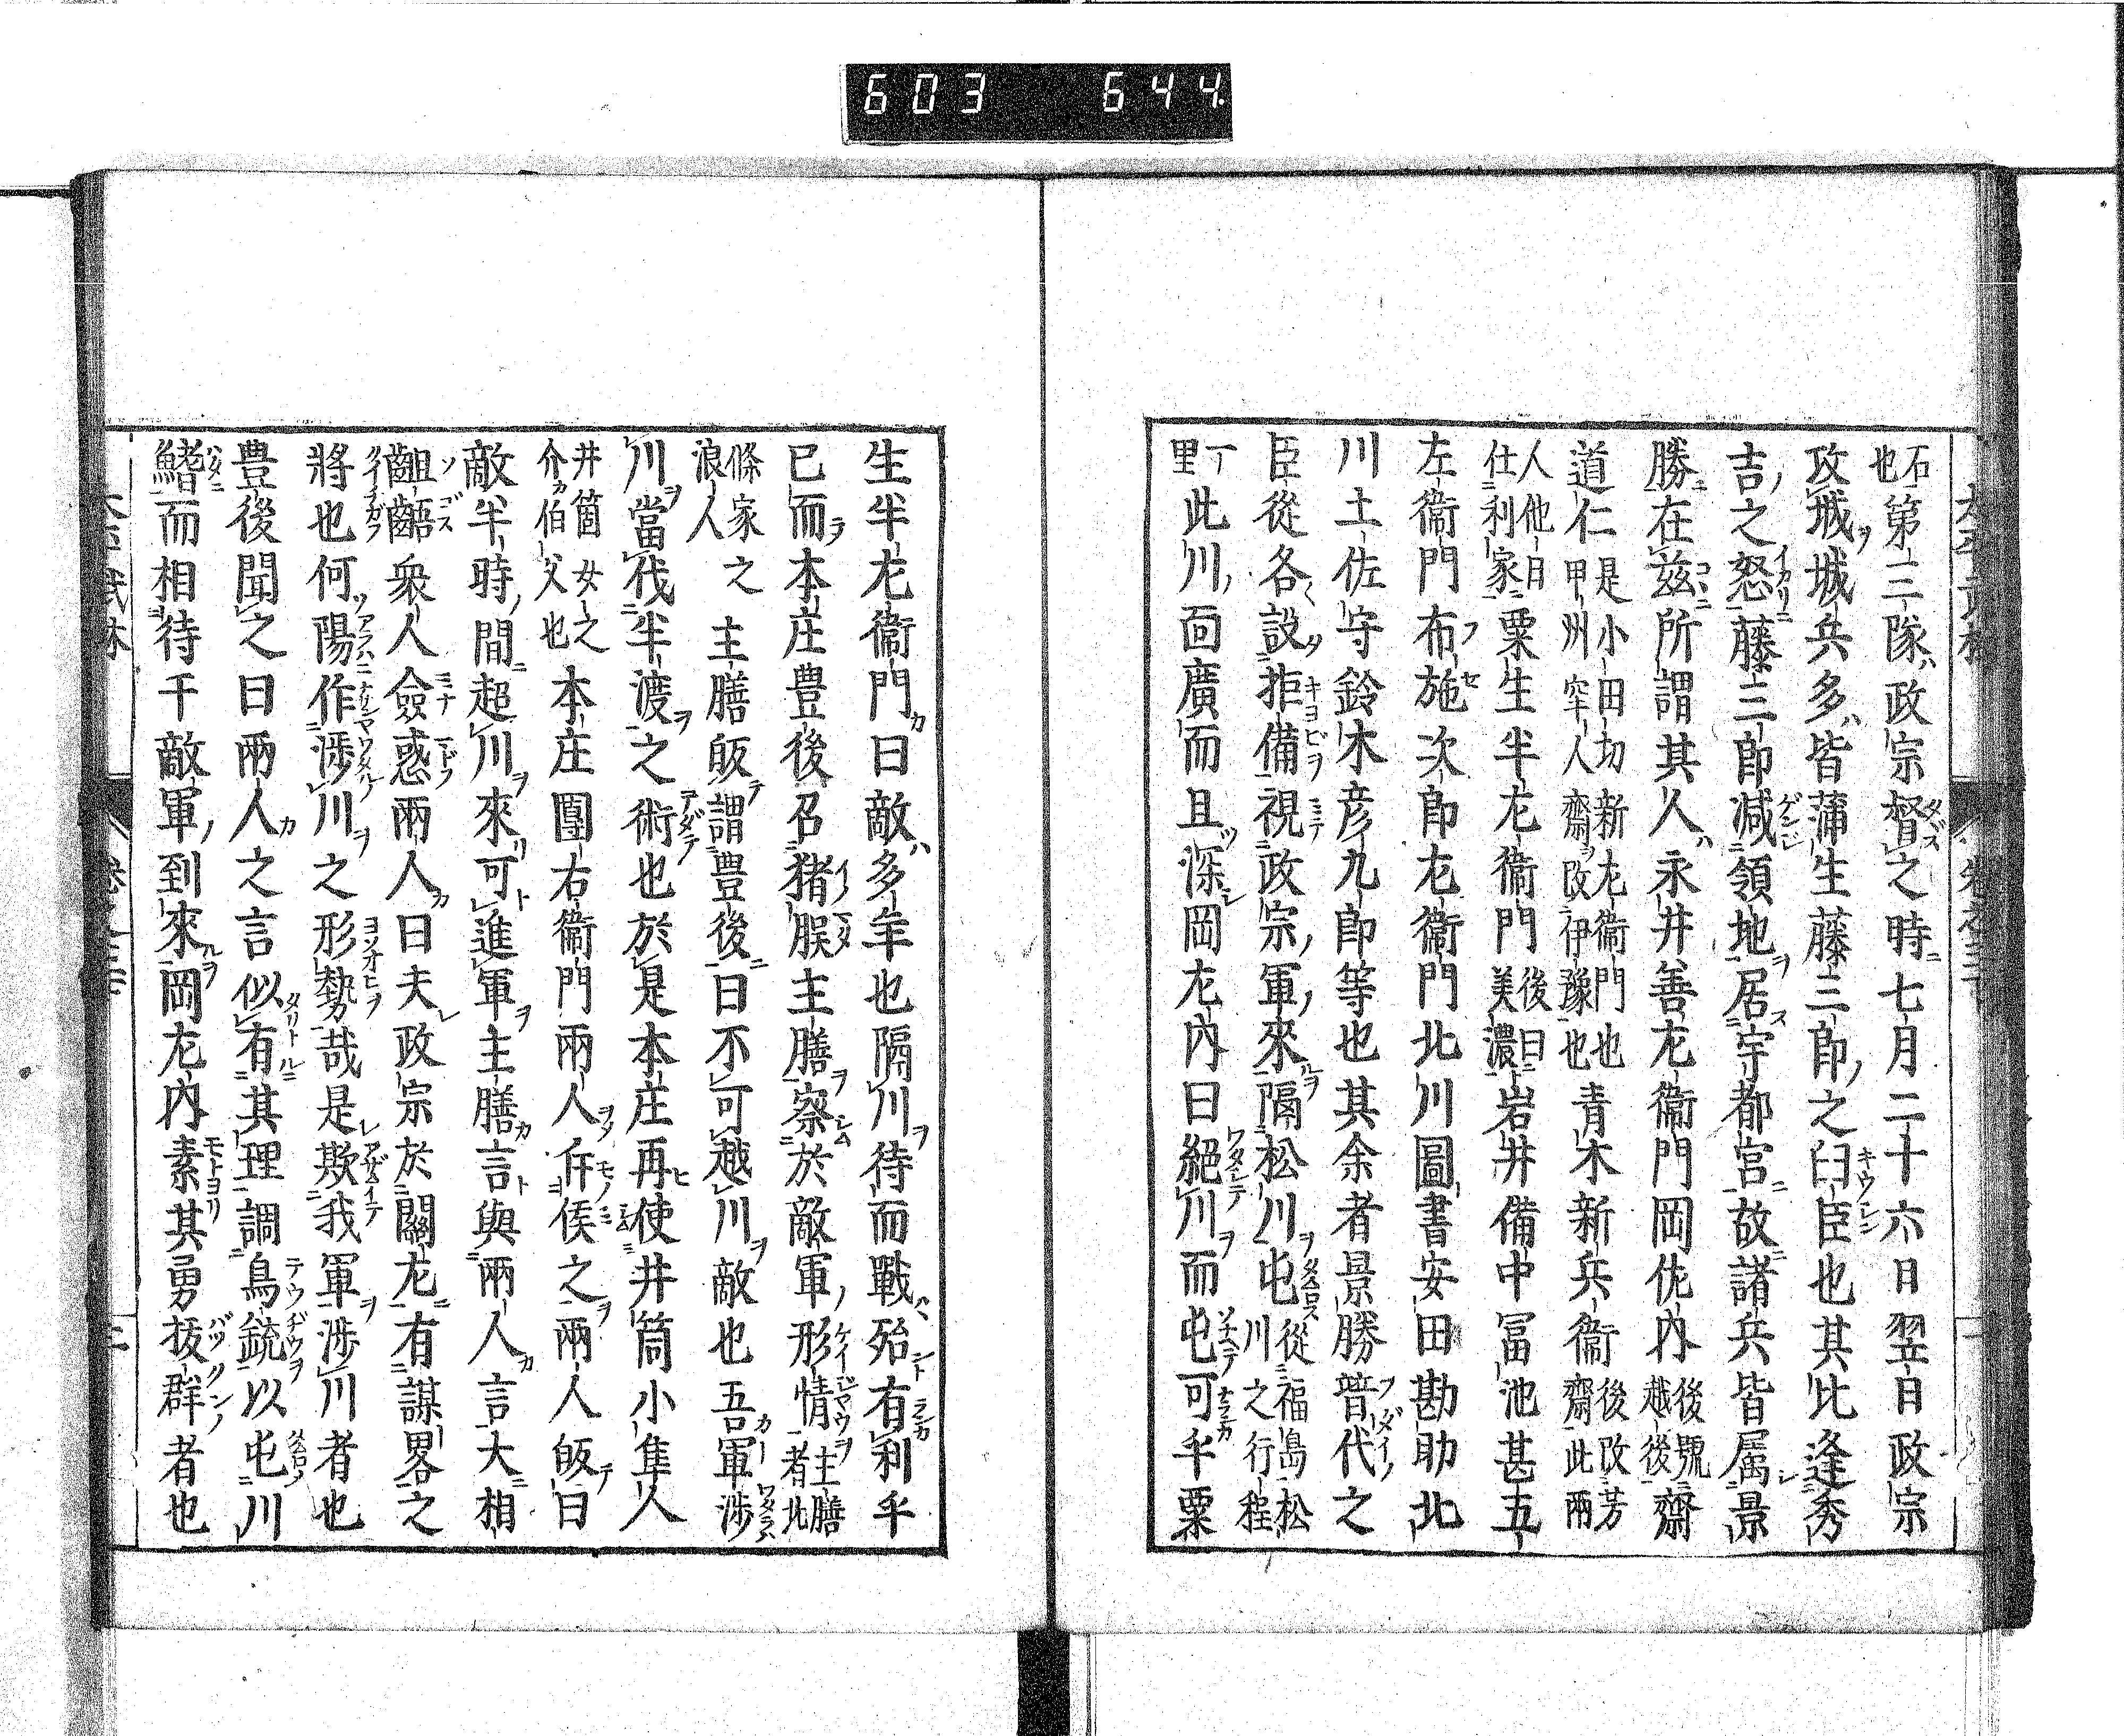 603 644
石也第三隊政宗督之時七月二十六日翌日政宗
攻城城兵多皆蒲生藤三郎之臼臣也其比逢秀
吉之怒藤三郎減領地居宇都宮故諸兵皆属景
勝在茲所謂其人永井善左衞門岡佐内後號越後齋
道仁是小田切新左衞門也甲州窂人齋改伊豫也青木新兵衞後改芳齋此兩
人他日仕利家粟生半左衞門後日美濃岩井備中冨池甚五
左衞門布施次郎左衞門北川圖書安田勘助北
川土佐守鈴木彦九郎等也其余者景勝普代之
臣從各設拒備視政宗軍來隔松川屯從福島松川之行程
一丁里此川面廣而且深岡左内曰絕川而屯可乎粟
生半左衞門曰敵多羊也隔川待而戰殆有利乎
已而本庄豊後召猪股主膳察於敵軍形情主膳者北
條家之浪人主膳皈謂豊後曰不可越川敵也吾軍渉
川當伐半渡之術也於是本庄再使井筒小隼人
井箇女之介伯父也本庄團右衞門兩人斥候之兩人皈曰
敵半時間超川來可進軍主膳言與兩人言大相
齟齬衆人僉惑兩人曰夫政宗於關左有謀畧之
將也何陽作渉川之形勢哉是欺我軍渉川者也
豊後聞之曰兩人之言似有其理調鳥銃以屯川
鰭而相待于敵軍到來岡左内素其勇拔群者也